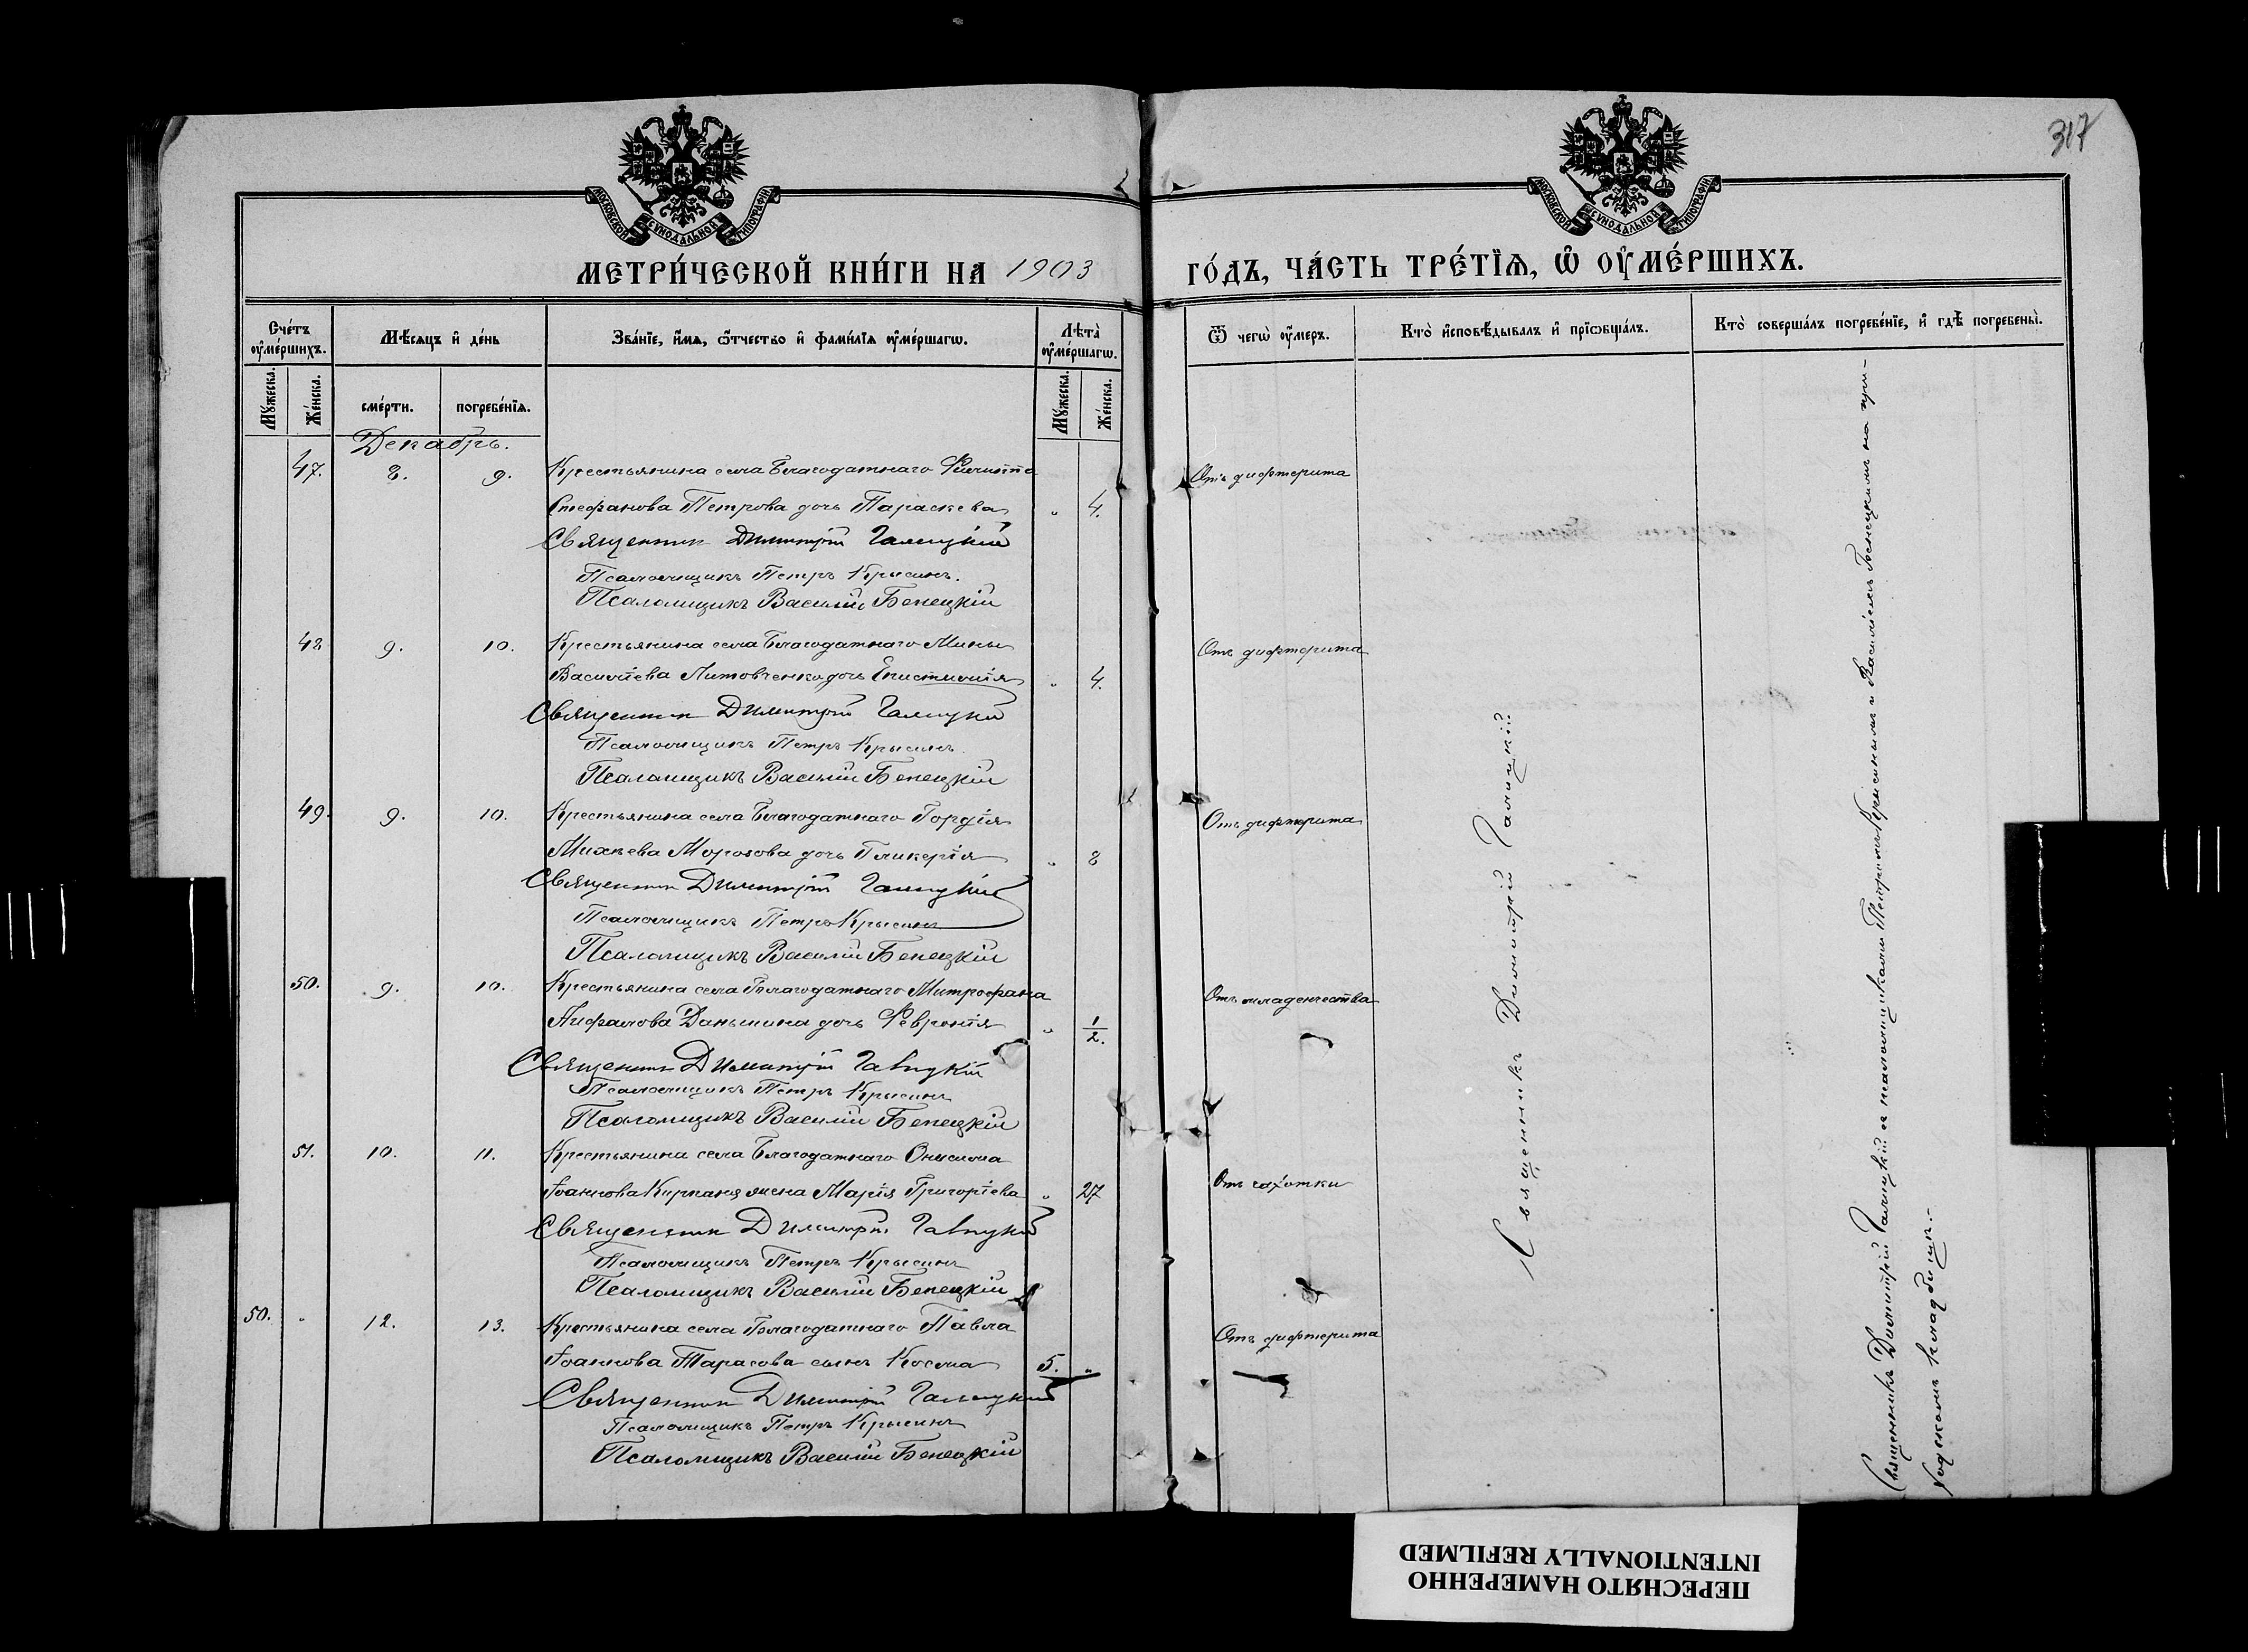 317
МОСКОВСКОЙ СУНОДАЛЬНОЙ ТИПОГРАФІИ
МОСКОВСКОЙ СУНОДАЛЬНОЙ ТИПОГРАФІИ
МЕТРИ́ЧЕСКОЙ КНИ́ГИ НА 1903 ГО́ДЪ, ЧА́СТЬ ТРЕ́ТЇѦ, Ѡ ОУМЕ́РШИХЪ.
Счетъ оумершихъ.
Мѣсяцъ и день
Званіе, имя, отчество и фамилія оумершагѡ.
Лѣта оумершагѡ.
Ѿ чегѡ оумеръ.
Кто исповѣдывалъ и прїѡбщалъ.
Кто совершалъ погребеніе, и гдѣ погребены.
Мужеска.
Женска.
смерти.
погребенїя.
Мужеска.
Женска.
Декабрь.
47. 8. 9. Крестьянина села Благодатнаго Филиппа
Стефанова Петрова дочь Параскева " 4. Отъ дифтерита
Священник Димитрій Галицкій
Псаломщикъ Петръ Крысинъ.
Псаломщикъ Василій Бенецкій
48 9. 10. Крестьянина села Благодатнаго Мины
Василіева Литовченко дочь Епистимія " 4. Отъ дифтерита
Священник Димитрій Галицкій
Псаломщикъ Петръ Крысинъ.
Псаломщикъ Василій Бенецкій
49. 9. 10. Крестьянина села Благодатнаго Гордія
Михеева Морозова дочь Гликерія " 8 Отъ дифтерита
Священник Димитрій Галицкій
Псаломщикъ Петръ Крысинъ
Псаломщикъ Василій Бенецкій
50. 9. 10. Крестьянина села Благодатнаго Митрофана
Дочь Феврония " 1/2. Отъ младенчества
Священник Димитрій Галицкій
Псаломщикъ Петръ Крысинъ
Псаломщикъ Василій Бенецкій
51. 10. 11. Крестьянина села Благодатнаго Онисима
Іоаннова жена Марія Григоріева " 27 Отъ чахотки
Священник Димитрій Галицкій
Псаломщикъ Петръ Крысинъ
Псаломщикъ Василій Бенецкій
50. " 12. 13. Крестьянина села Благодатнаго Павла
Іоаннова Тарасова сынъ Косма 5. " Отъ дифтерита
Священник Димитрій Галицкій
Псаломщикъ Петръ Крысинъ
Псаломщикъ Василій Бенецкій
Священникъ Димитрій Галицкій
Священникъ Димитрій Галицкій съ псаломщиками Петромъ Крысинымъ и Василіемъ Бенецкимъ на при-
ходскомъ кладбищѣ.-
ПЕРЕСНЯТО НАМЕРЕННО
INTENTIONALLY REFILMED